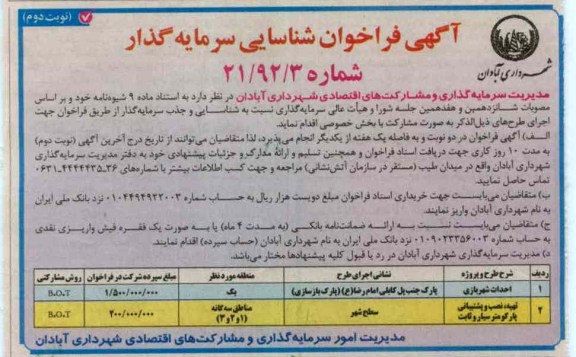 (نوبت دوم)
آگهی فراخوان شناسایی سرمایه گذار
شماره ۲۱/۹۲/۳
شهرداری آبادان
مدیریت سرمایه گذاری و مشارکت های اقتصادی شهرداری آبادان در نظر دارد به استناد ماده ۹ شیوه نامه خود و بر اساس
مصوبات شانزدهمین و هفدهمین جلسه شورا و هیأت عالی سرمایه گذاری نسبت به شناسایی و جذب سرمایه گذار از طریق فراخوان جهت
اجرای طرح های ذیل الذکر به صورت مشارکت با بخش خصوصی اقدام نماید.
الف) آگهی فراخوان در دو نوبت و به فاصله یک هفته از یکدیگر انجام می پذیرد، لذا متقاضیان می توانند از تاریخ درج آخرین آگهی (نوبت دوم)
به مدت ۱۰ روز کاری جهت دریافت اسناد فراخوان و همچنین تسلیم و ارائه مدارک و جزئیات پیشنهادی خود به دفتر مدیریت سرمایه گذاری
شهرداری آبادان واقع در میدان طیب (مستقر در سازمان آتش نشانی) مراجعه و جهت کسب اطلاعات بیشتر با شماره های ۳۶-۴۴۴۴۴۳۵-۰۶۳۱
تماس حاصل نمایید.
ب) متقاضیان می بایست جهت خریداری اسناد فراخوان مبلغ دویست هزار ریال به حساب شماره ۰۱۰۴۴۹۴۹۲۳۰۰۳ نزد بانک ملی ایران
به نام شهرداری آبادان واریز نمایند.
ج) متقاضیان می بایست نسبت به ارائه ضمانت نامه بانکی (به مدت ۴ ماه) یا به صورت یک فقره فیش واریزی نقدی
به حساب شماره ۰۱۰۹۰۲۳۳۵۶۰۰۳ نزد بانک ملی ایران به نام شهرداری آبادان (حساب سپرده) اقدام نمایند.
د) مدیریت سرمایه گذاری شهرداری آبادان در رد یا قبول کلیه پیشنهادها مختار می باشد.
ردیف شرح طرح و پروژه نشانی اجرای طرح منطقه مورد نظر مبلغ سپرده شرکت در فراخوان روش مشارکتی
۱ احداث شهربازی پارک جنب پل کابلی امام رضا (ع) (پارک بازسازی) یک ۱/۵۰۰/۰۰۰/۰۰۰ B.O.T
۲ تهیه، نصب و پشتیبانی پارکومتر سیار و ثابت سطح شهر مناطق سه گانه (۱و۲و۳) ۴۰۰/۰۰۰/۰۰۰ B.O.T
مدیریت امور سرمایه گذاری و مشارکت های اقتصادی شهرداری آبادان